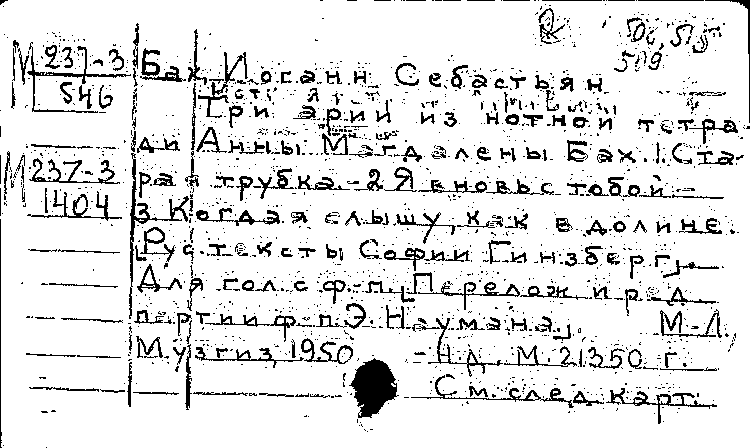 506, 513
509
М 237-3
546
Бах, Иоганн Себастьян
Три арии из нотной тетра-
ди Анны Магдалены Бах. 1. Ста-
М 237-3
1404
рая трубка. - 2 Я вновь с тобой. -
3. Когда я слышу, как в долине.
[Рус. тексты Софии Гинзберг].
Для гол. с ф.-п. [Перелож. и ред.
партии ф-п. Э. Наумана.]. М.-Л.,
Музгиз, 1950 - Н.д. М. 21350 г.
См. след. карт.